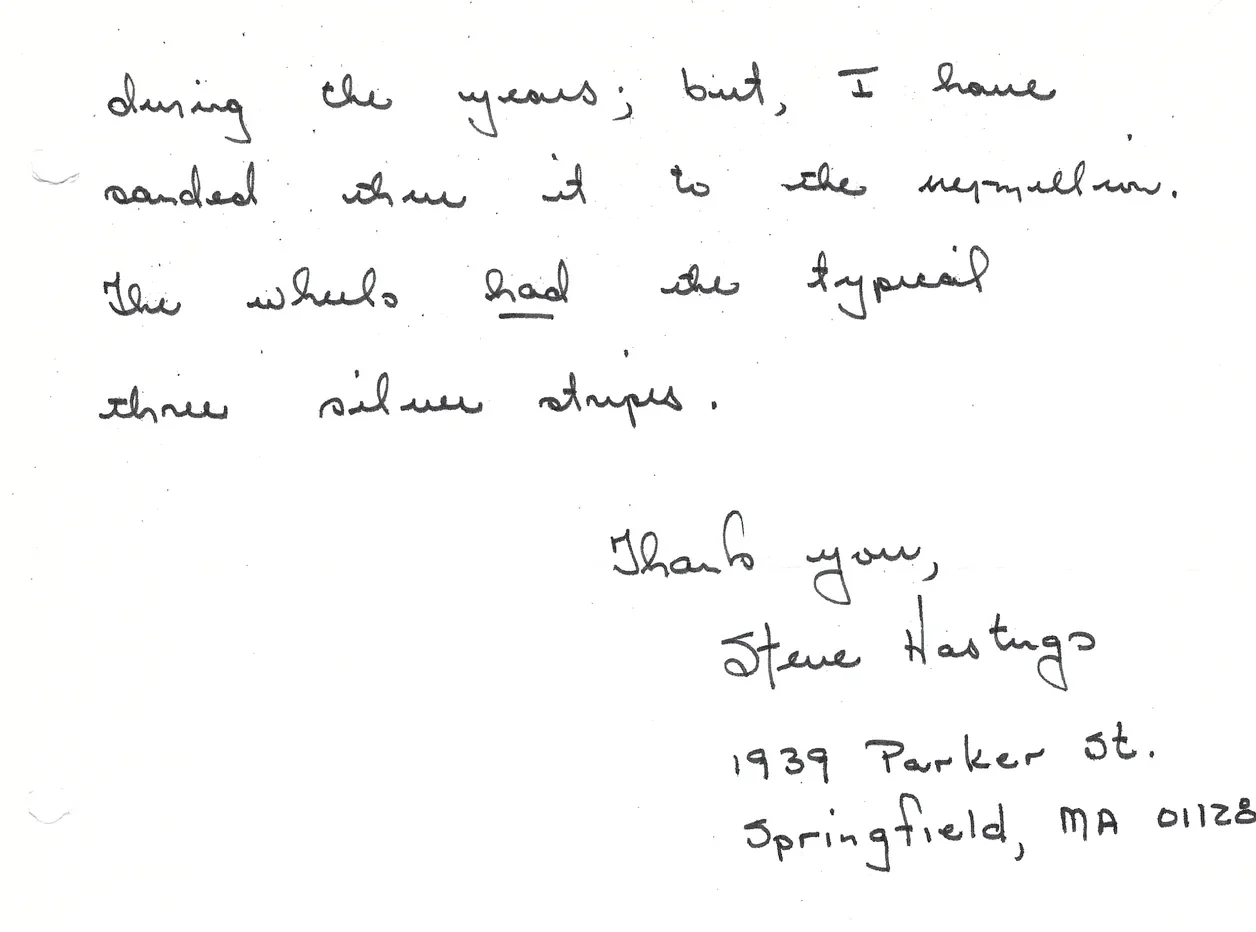 during the years; but, I have
sanded thru it to the vermillion.
The wheels had the typical
three silver stripes.
Thank you,
Steve Hastings
1939 Parker St.
Springfield, MA 01128